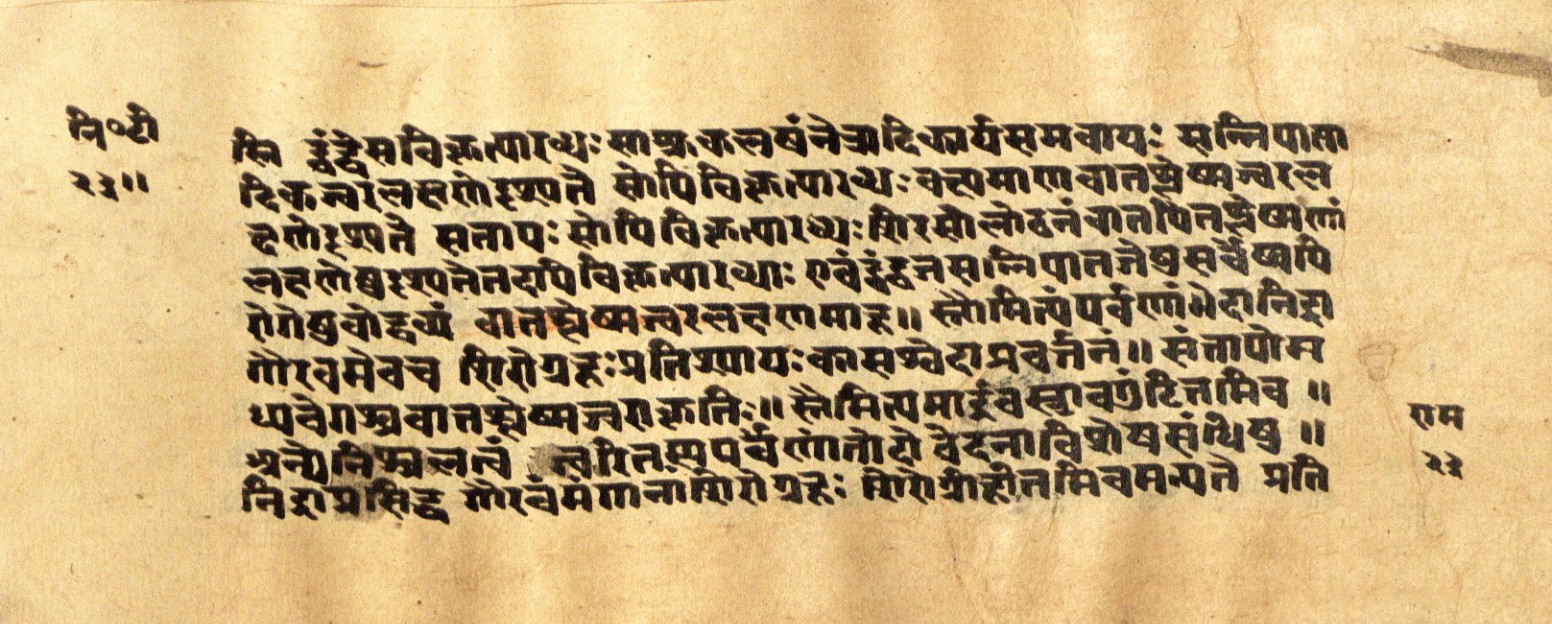 नि०टी
२३॥
न्नि द्वंद्वेसविकृत्पारव्धः साश्रुकलषंनेत्रादिकार्यसमवायः सन्निपाता
दिकज्वरलक्षणेदृश्यते सोपिविकृत्पारव्धः वक्ष्यमाणवातश्लेष्मज्वरल
क्षणेदृश्यते सतापः सोपिविकृत्पारव्धः शिरसोलोठनंवातपित्तश्लेष्माणां
लक्षणेषुदृश्यतेतदापिविकृत्पारव्धाः एवंद्वंद्वजसन्निपातजेषुसर्वेष्वपि
रोगेषुवोद्धव्यं वातश्लेष्मज्वरलक्षणमाह॥ स्तैमित्यंपर्वणांभेदोनिद्रा
गोरवमेवच शिरोग्रहःप्रतिश्यायःकासश्वेदाप्रवर्त्तनं॥ संतापोम
ध्यवेगश्चवातश्लेष्मज्वराकृतिः॥ स्तैमित्यमार्द्रवस्त्रावगुंठितमिव ॥
अन्येनिश्चलत्वं त्वरितस्यपर्वणांतोदो वेदनाविशेषसंधिषु ॥
निद्राप्रसिद्ध गोरवंमंगानांशिरोग्रहः शिरोग्रीहीतमिवमन्यते प्रति
राम
२३